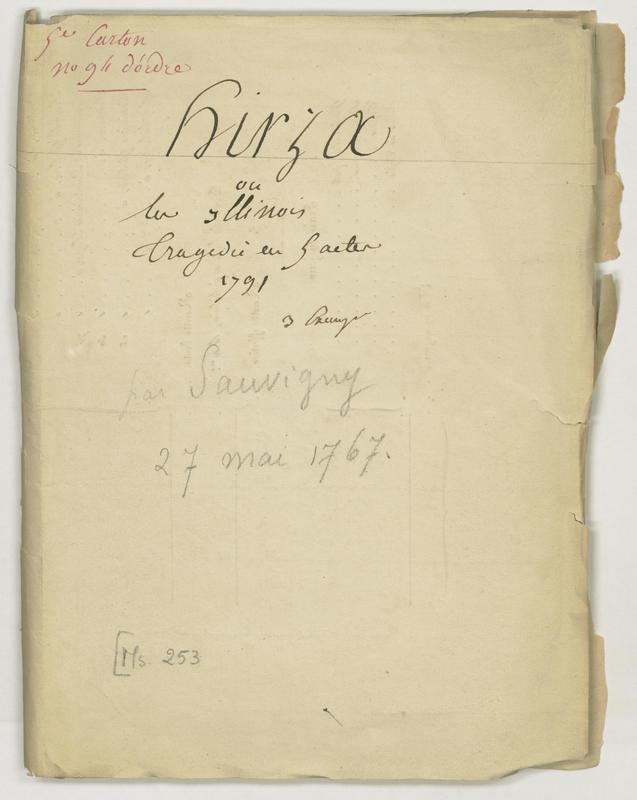 5e Carton
no 94 d'ordre
hirza
ou
les illinois
tragedie en 5 actes
1791
3
par Sauvigny
27 mai 1767.
[Ms. 253